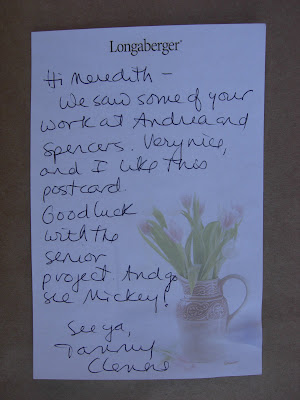 Longaberger®
Hi Meredith –
We saw some of your
work at Andrea and
Spencers. Very nice,
and I like this
postcard.
Good luck
with the
senior
project. And go
see Mickey!
See ya,
Tammy